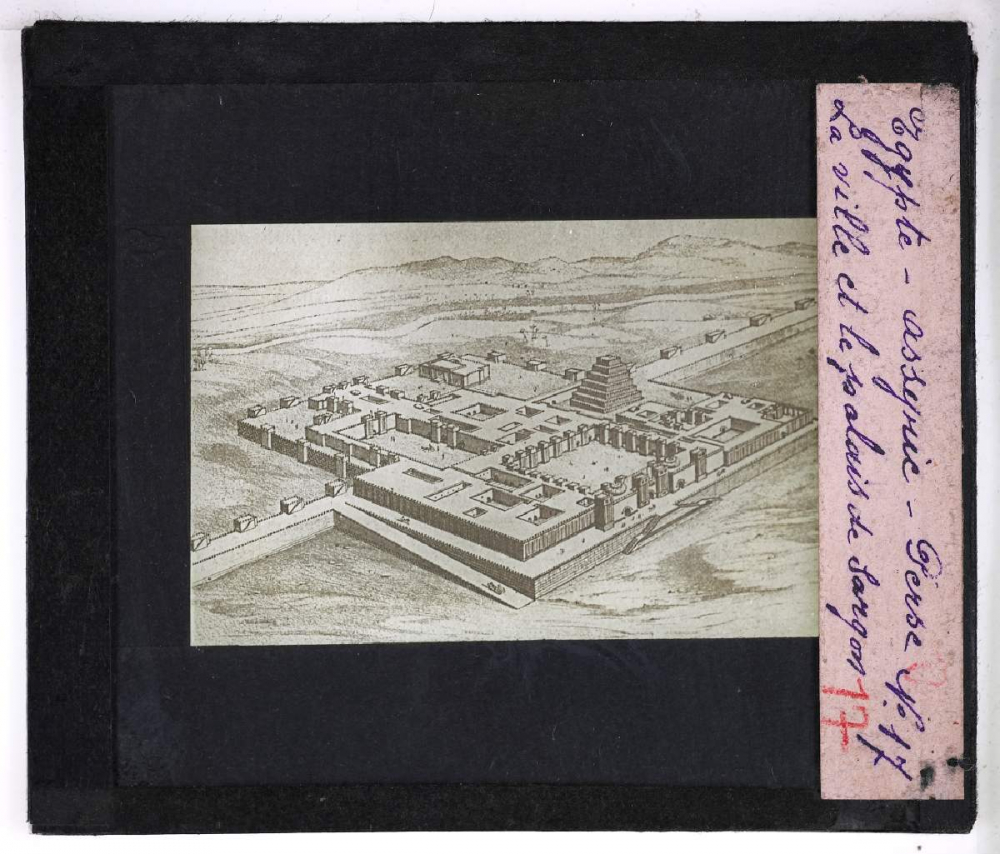 Egypte - assyrie - Perse N.o 17
La ville et le palais de Sargon
17